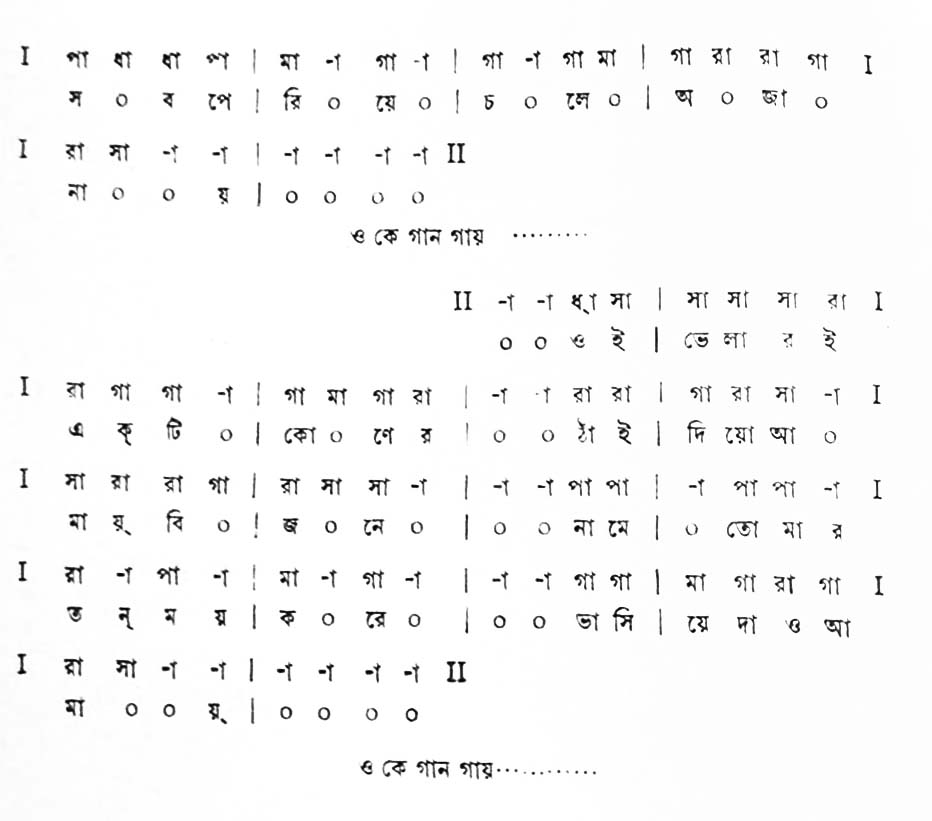 I পা ধা ধা পা | মা -া গা -া | গা -া গা মা | গা রা রা গা I
স ০ ব পে | রি ০ য়ে ০ | চ ০ লে ০ | অ ০ জা ০
I রা সা -া -া | -া -া -া -া II
না ০ ০ য় | ০ ০ ০ ০
ও কে গান গায় .........
II -া -া ধ্া সা | সা সা সা রা I
০ ০ ও ই | ভে লা র ই
I রা গা গা -া | গা মা গা রা | -া -া রা রা | গা রা সা -া I
এ ক্ টি ০ | কো ০ ণে র | ০ ০ ঠাঁ ই | দি য়ো আ ০
I সা রা রা গা | রা সা সা -া | -া -া পা পা | -া পা পা -া I
মা য়্ বি ০ | জ ০ নে ০ | ০ ০ না মে | ০ তো মা র
I রা -া পা -া | মা -া গা -া | -া -া গা গা | মা গা রা গা I
ত ন্ ম য় | ক ০ রে ০ | ০ ০ ভা সি | য়ে দা ও আ
I রা সা -া -া | -া -া -া -া II
মা ০ ০ য়্ | ০ ০ ০ ০
ও কে গান গায়.............